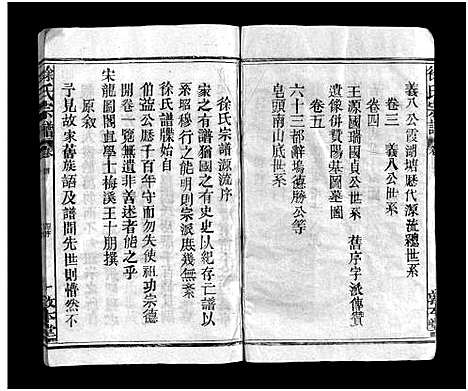 徐氏宗譜
義八公霞湖塘歷代源流總世系
卷三　義八公世系
卷四
王源國瑞國貞公世系　舊序字派傳贊
遺像併賛陽基圖墓圖
卷五
六十三都辭塢德勝公等
皂頭南山底世系
敦本堂
徐氏宗譜源流序
家之有譜猶國之有史史以紀存亡譜以
系昭穆行之能明則宗派庶幾無紊
徐氏譜牒始自
伯益公歷千百年守而勿失使祖功宗德
開卷一覽無遺非善述者能之乎
宋龍圖閣直學士梅溪王十朋撰
原敘
予見故家舊族詔及譜間先世則懵然不
徐氏宗譜
敦本堂